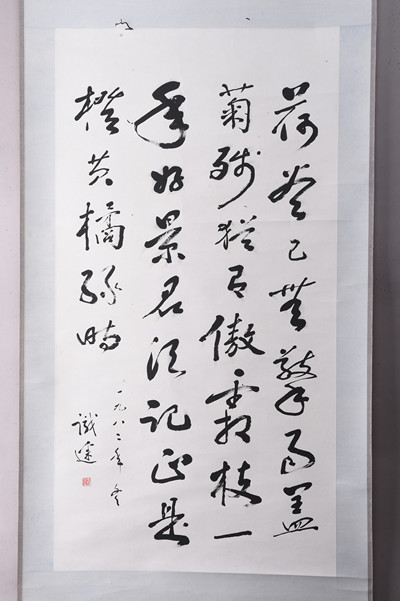 荷尽已無擎雨盖
菊残猶有傲霜枝一
年好景君須記正是
橙黄橘绿時
一九八二年冬
識途